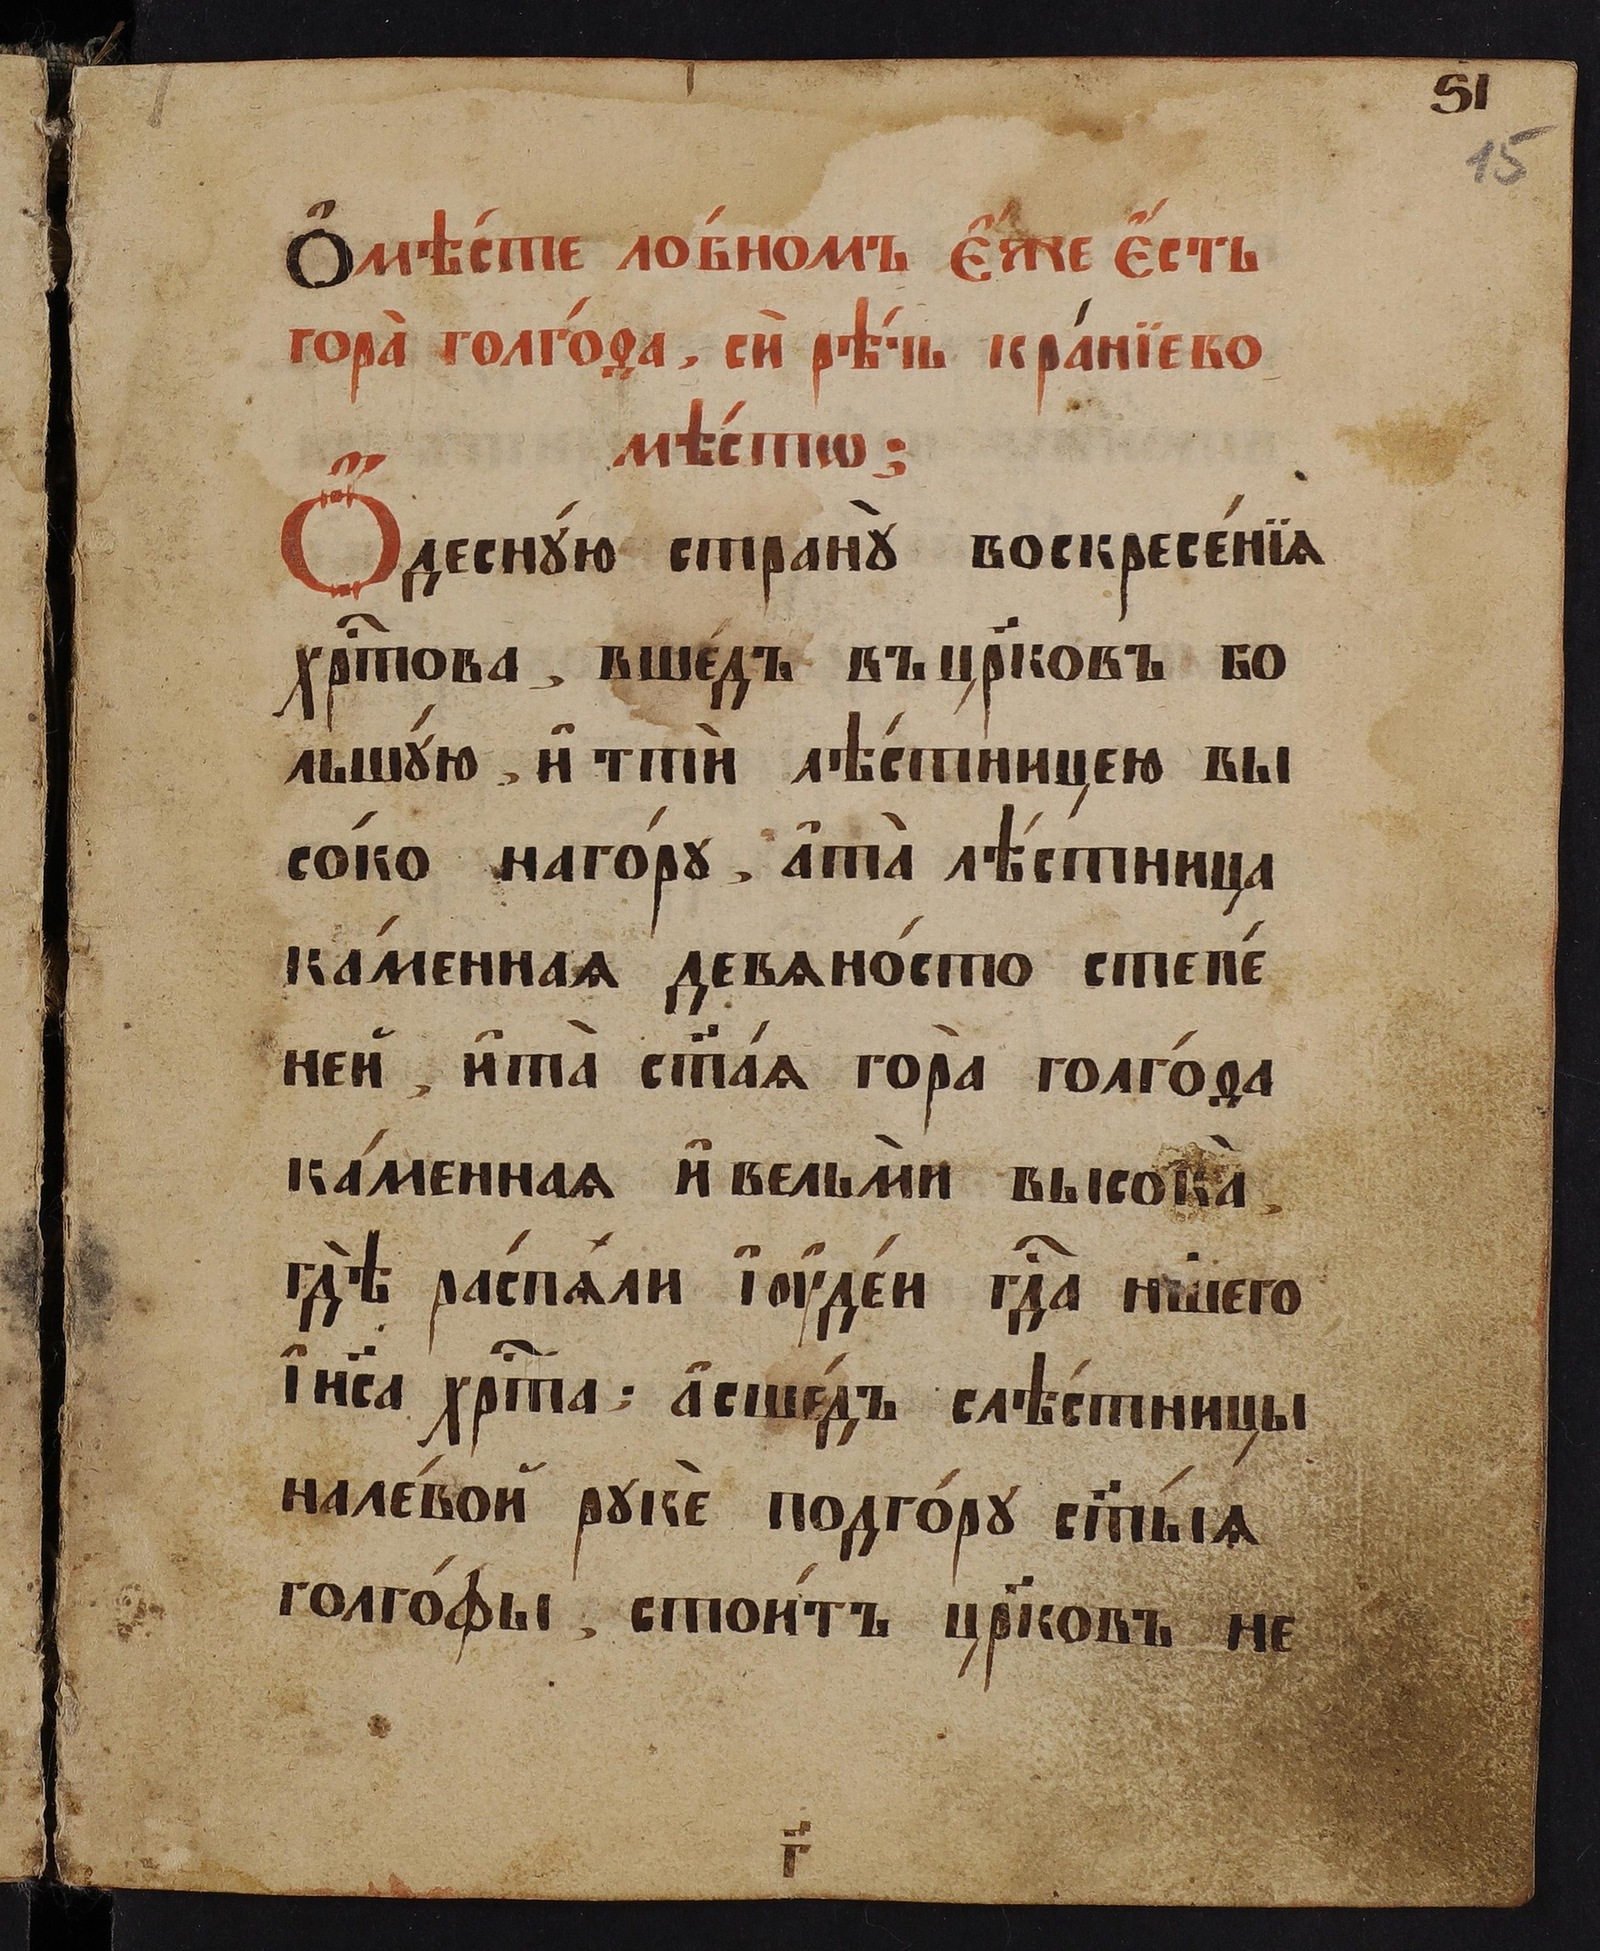 ѕ҃і
15
Ѻ҆мѣ́сте ло́бномъ є҆́же є҆́сть
гора̀ голго́ѳа, сѝ рѣ́чь кра́нїево
мѣ́стѡ;
Ѻ҆десну́ю странꙋ̀ воскресе́нїѧ
хрⷭ҇това, вше́дъ въцр҃ковъ бо
льшꙋ́ю, и҆ттѝи лѣ́стницею вы
со́ко наго́рꙋ, а҆та̀ лѣ́стница
ка́меннаѧ девѧно́сто степе́
ней, и҆та̀ ст҃а́ѧ гора̀ голго́ѳа
ка́меннаѧ и҆вельмѝи высока̀,
гдѣ̀ распѧ́ли і҆оу҆де́и гдⷭ҇а н҃шего
і҆и҃са хрⷭ҇та: а҆сше́дъ слѣ́стницы
нале́вой рукѐ подго́рꙋ ст҃ы́ѧ
голго́фы, стои́тъ цр҃ковъ не
г҃